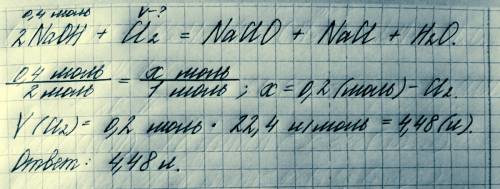 0,4 моль V-?
2NaOH + Cl2 = NaClO + NaCl + H2O.
0,4 моль / 2 моль = x моль / 1 моль ; x = 0,2 (моль) - Cl2.
V (Cl2) = 0,2 моль · 22,4 л/моль = 4,48 (л).
Ответ: 4,48 л.